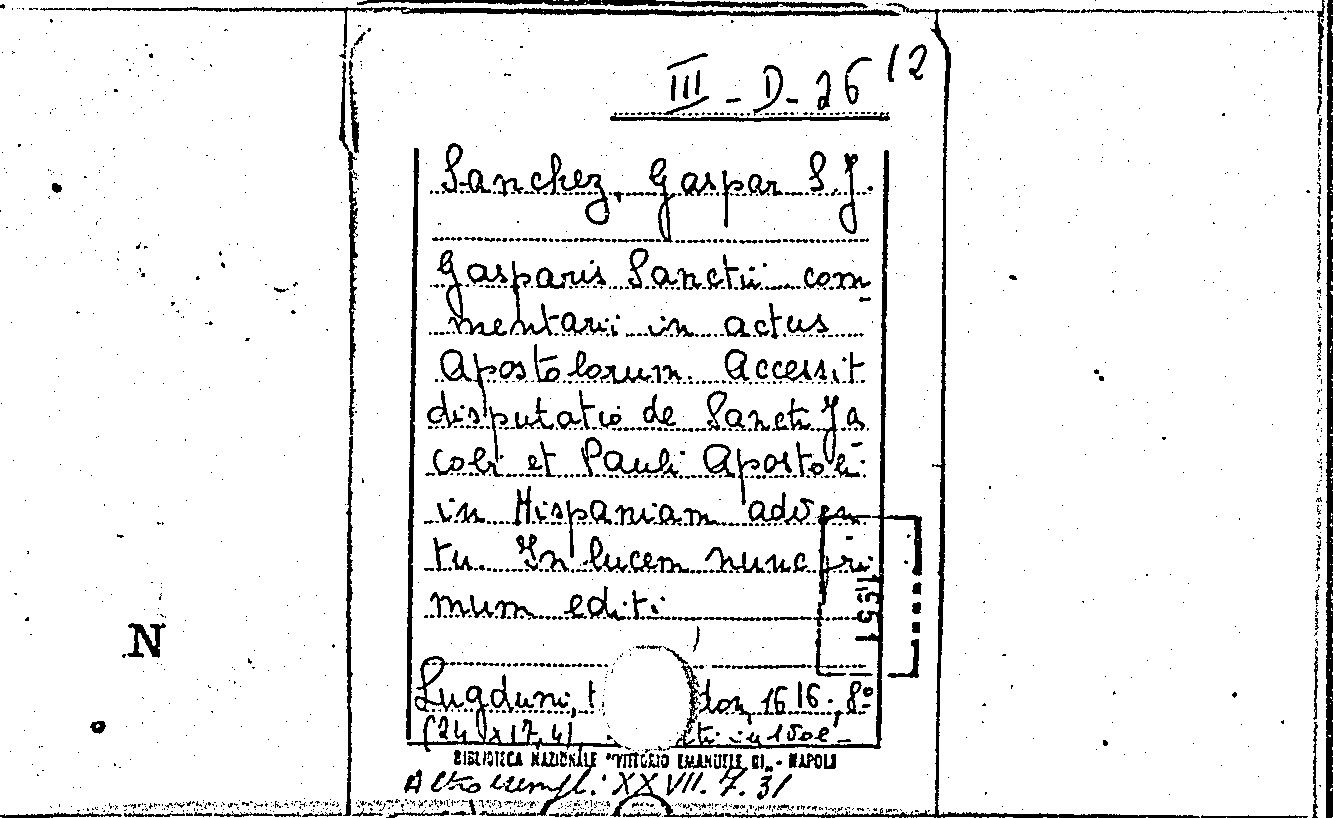 III - D - 26 12
Sanchez, Gaspar S.J.
Gasparis Sanctii com
mentarii in actus
Apostolorum. Accessit
disputatio de Sancti Ja
cobi et Pauli Apostoli
in Hispaniam adven
tu. In lucem nunc pri
mum editi
N
Lugduni, 1616, 8°
(24 x 17,4), in 1 vol
BIBLIOTECA NAZIONALE "VITTORIO EMANUELE III" - NAPOLI
Altro esempl.: XXVII. 7. 31
1551